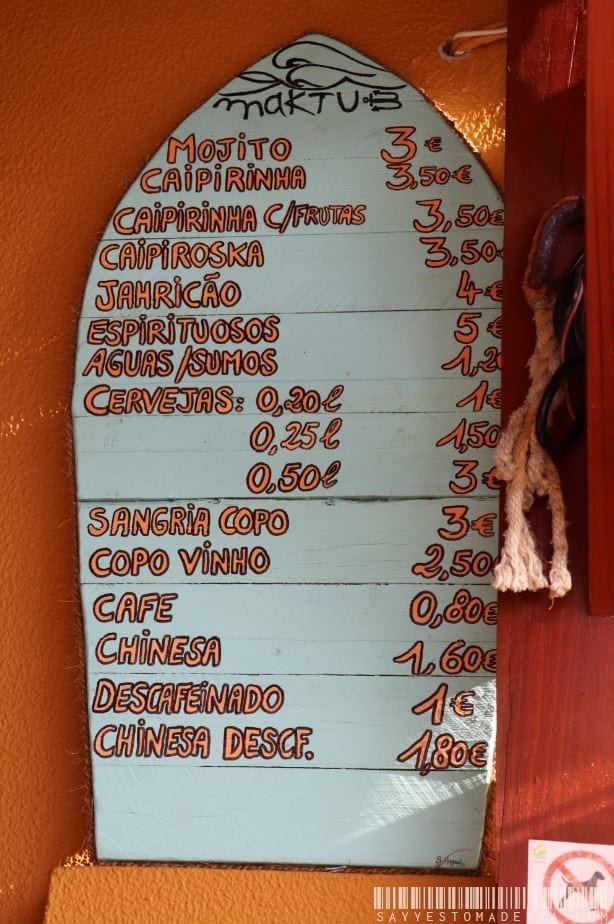 maktub
Mojito 3 €
Caipirinha 3,50€
Caipirinha c/frutas 3,50€
Caipiroska 3,50
Jahricão 4€
Espirituosos 5€
Aguas/Sumos 1,2
Cervejas: 0,20l 1€
0,25l 1,50
0,50l 3€
Sangria copo 3€
Copo vinho 2,50
Cafe 0,80€
Chinesa 1,60€
Descafeinado 1€
Chinesa Descf. 1,80€
SAYYESTOMADE